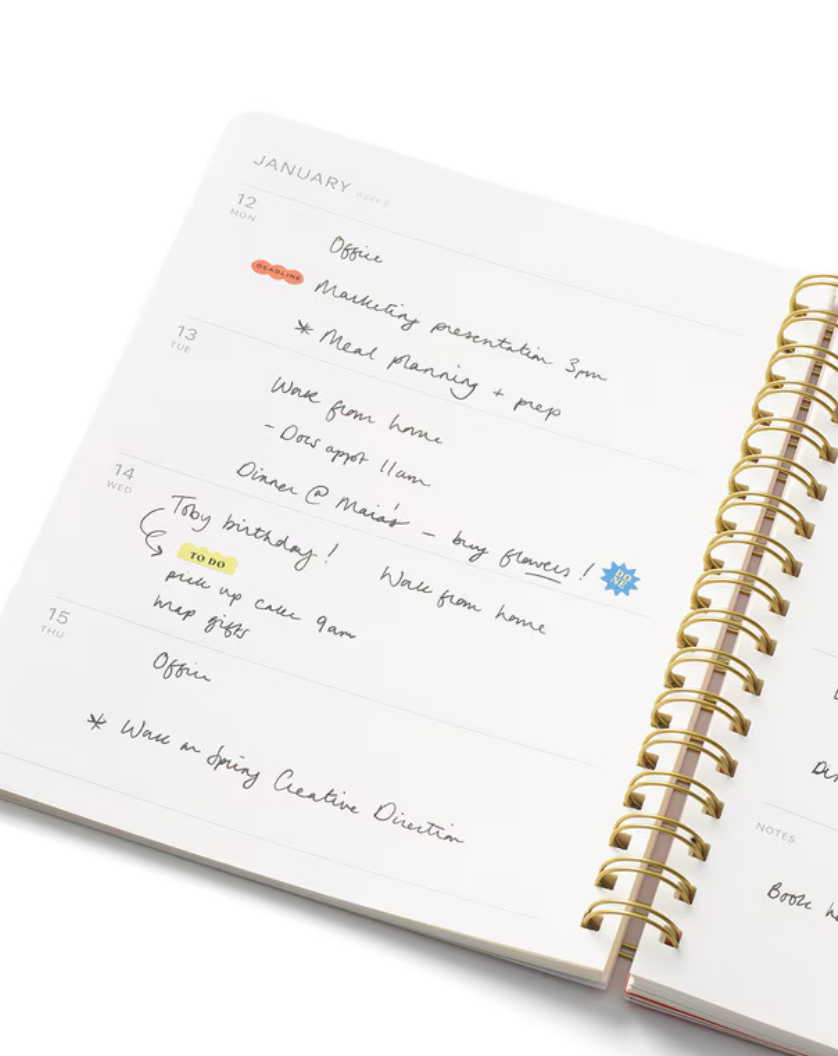 JANUARY WEEK 3
12
MON
Office
DEADLINE
Marketing presentation 3pm
* Meal planning + prep
13
TUE
Work from home
- Docs appt 11am
Dinner @ Maia's - buy flowers! DONE
14
WED
Toby birthday! Work from home
TO DO
pick up cake 9am
wrap gifts
15
THU
Office
* Work on Spring Creative Direction
NOTES
Book